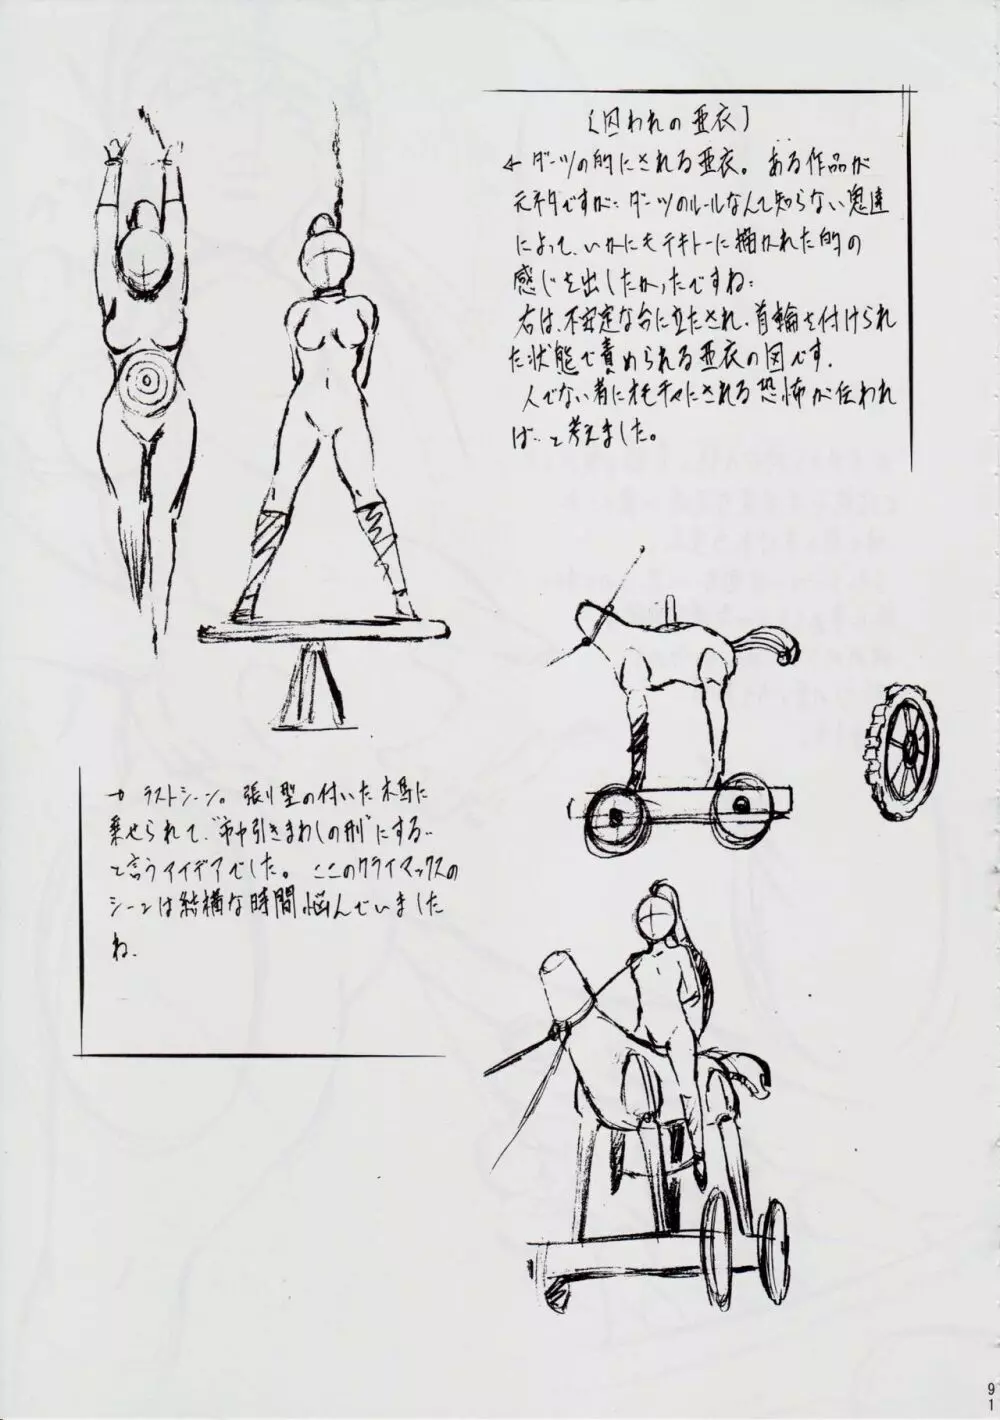 〔囚われの亜衣〕
← ダーツの的にされる亜衣。ある作品が
元ネタですが‥ダーツのルールなんて知らない鬼達
によって、いかにもテキトーに描かれた的の
感じを出したかったですね‥
右は、不安定な台に立たされ、首輪を付けられ
た状態で責められる亜衣の図です.
人でない者にオモチャにされる恐怖が伝われ
ば‥と考えました。
ラストシーン。張り型の付いた木馬に
乗せられて、"市中引きまわしの刑"にする‥
と言うアイデアでした。ここのクライマックスの
シーンは結構な時間悩んでいました
ね.
91